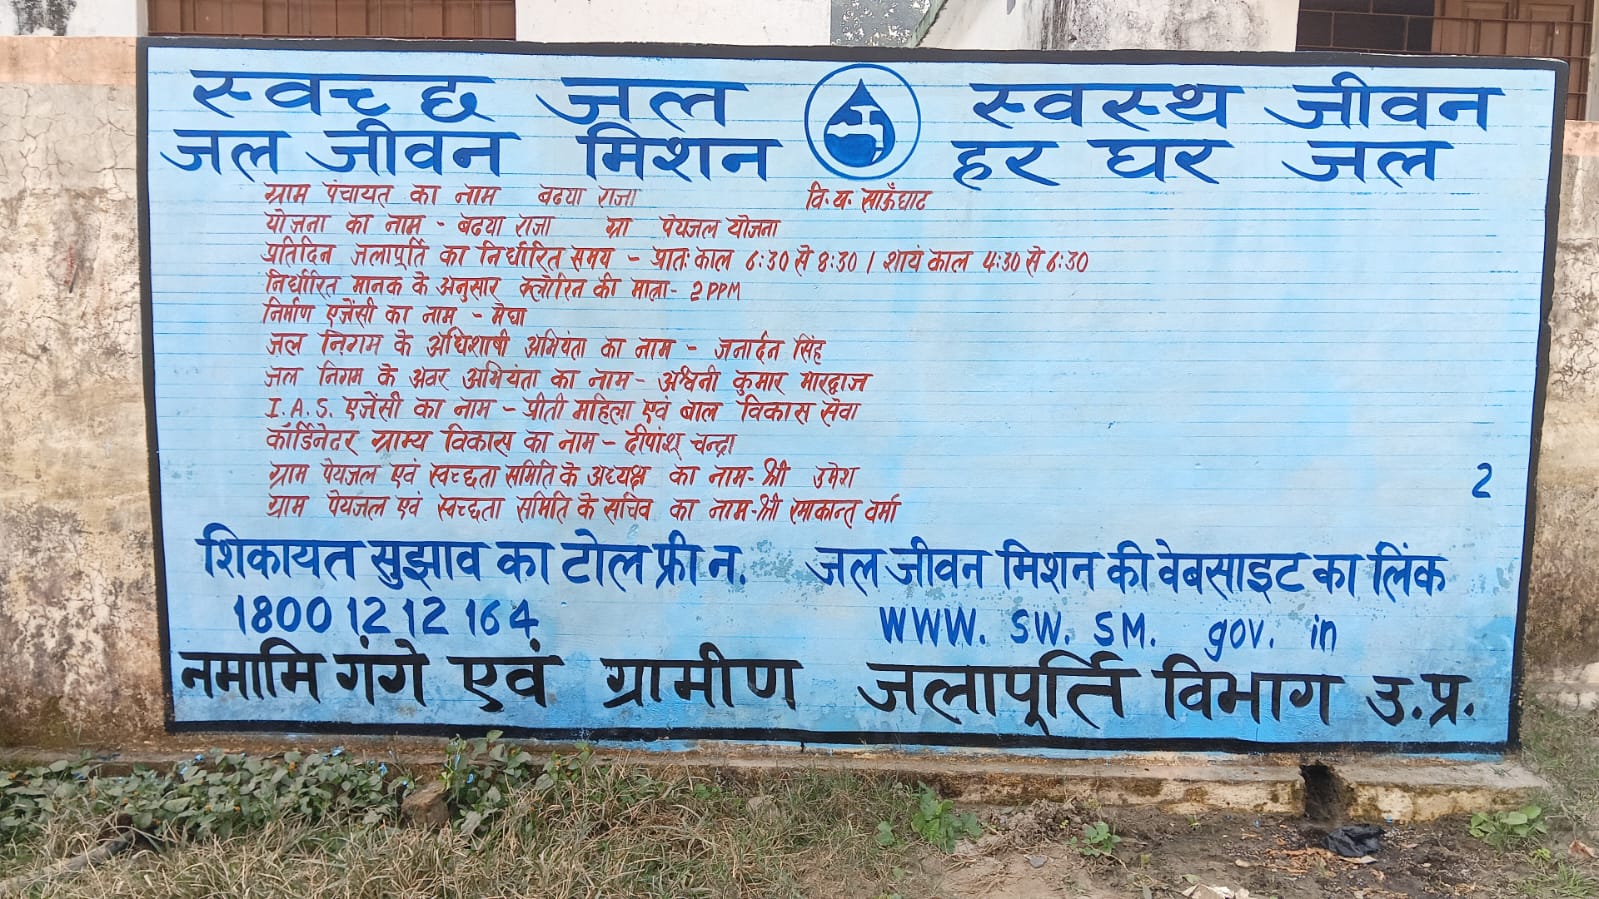 स्वच्छ जल स्वस्थ जीवन
जल जीवन मिशन हर घर जल
ग्राम पंचायत का नाम बढया राजा वि.ख. साऊँघाट
योजना का नाम - बढया राजा ग्रा पेयजल योजना
प्रतिदिन जलापूर्ति का निर्धारित समय - प्रातः काल 6:30 से 8:30 / शायं काल 4:30 से 6:30
निर्धारित मानक के अनुसार क्लोरिन की मात्रा - 2 PPM
निर्माण एजेंसी का नाम - मेघा
जल निगम के अधिशाषी अभियंता का नाम - जनार्दन सिंह
जल निगम के अवर अभियंता का नाम - अश्वनी कुमार भारद्वाज
I.A.S. एजेंसी का नाम - प्रीती महिला एवं बाल विकास सेवा
कॉर्डिनेटर ग्राम्य विकास का नाम - दीपांशू चन्द्रा
ग्राम पेयजल एवं स्वच्छता समिति के अध्यक्ष का नाम - श्री उमेश
2
ग्राम पेयजल एवं स्वच्छता समिति के सचिव का नाम - श्री रमाकान्त वर्मा
शिकायत सुझाव का टोल फ्री न. जल जीवन मिशन की वेबसाइट का लिंक
1800 12 12 164 WWW. SW. SM. gov. in
नमामि गंगे एवं ग्रामीण जलापूर्ति विभाग उ.प्र.